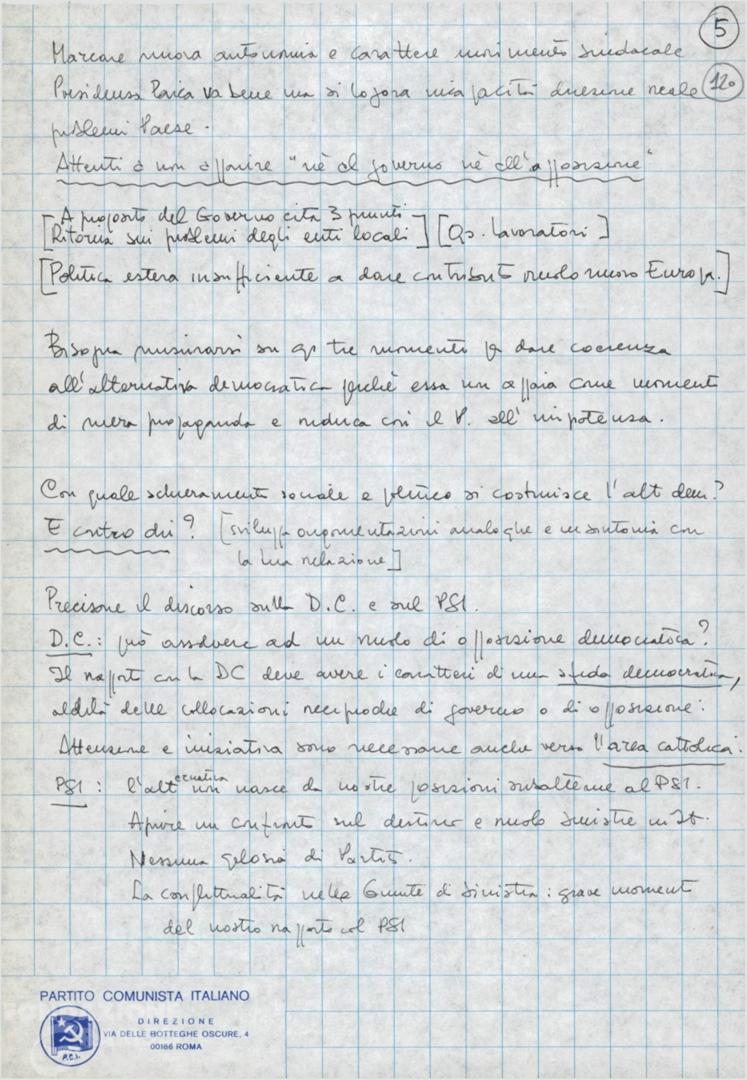 5
Marcare nuova autonomia e carattere movimento sindacale
Presidenza Parca va bene ma si logora incapacità direzione reale
120
problemi Paese.
Attenti a non apparire "nè al governo nè all'opposizione"
[A proposito del Governo cita 3 punti
Ritorna sui problemi degli enti locali] [Qs. lavoratori]
[Politica estera insufficiente a dare contributi ruolo nuovo Europa.]
Bisogna misurarsi su qs tre momenti x dare coerenza
all'alternativa democratica perchè essa non appaia come momento
di mera propaganda e riduca così il P. all'impotenza.
Con quale schieramento sociale e politico si costruisce l'alt dem.?
E contro chi? [sviluppa argomentazioni analoghe e in sintonia con
la tua relazione]
Precisare il discorso sulla D.C. e sul PSI.
D.C.: può assolvere ad un ruolo di opposizione democratica?
Il rapporto con la DC deve avere i caratteri di una sfida democratica,
aldilà delle collocazioni reciproche di governo o di opposizione.
Attenzione e iniziativa sono necessarie anche verso l'area cattolica.
PSI: l'alternativa non nasce da nostre posizioni subalterne al PSI.
Aprire un confronto sul destino e ruolo sinistre in It.
Nessuna gelosia di Partito.
La conflittualità nelle Giunte di Sinistra: grave momento
del nostro rapporto col PSI
PARTITO COMUNISTA ITALIANO
DIREZIONE
VIA DELLE BOTTEGHE OSCURE, 4
00186 ROMA
P.C.I.